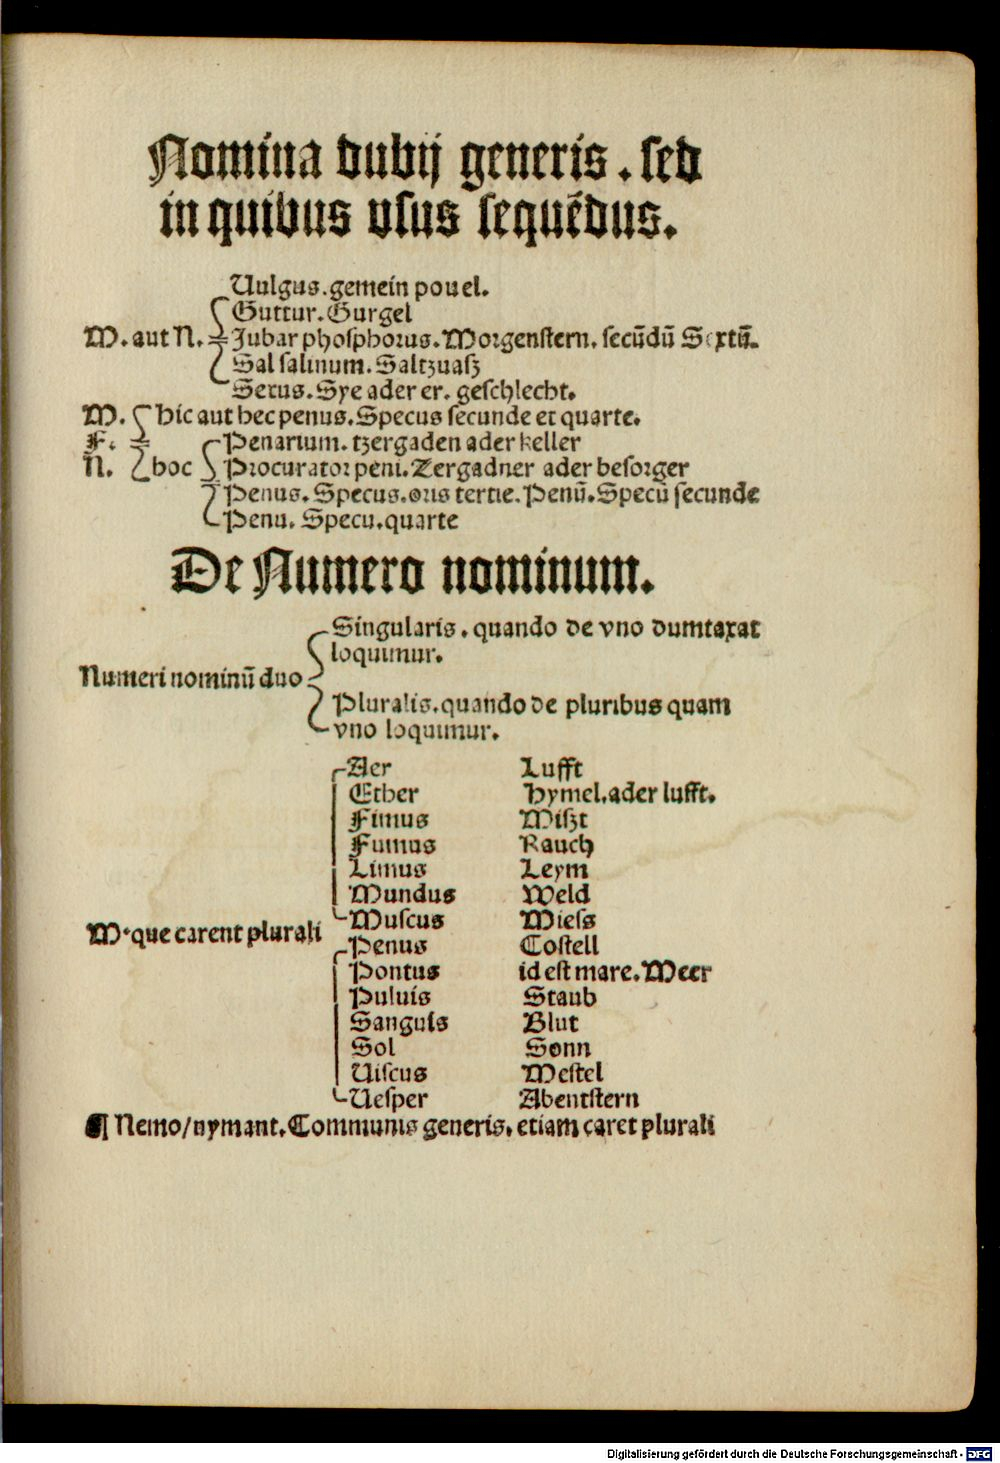 Nomina dubij generis. sed
in quibus vsus sequēdus.
Uulgus. gemein pouel.
Guttur. Gurgel
M. aut N. Jubar phosphorus. Morgenstern. secūdū Sextū.
Sal salinum. Saltzuasz
Sexus. Sye ader er. geschlecht.
M. Hic aut hec penus. Specus secunde et quarte.
F. Penarium. tzergaden ader keller
N. hoc Procurator peni. Zergadner ader besorger
Penus. Specus. oris tertie. Penū. Specū secunde
Penu. Specu. quarte
De Numero nominum.
Singularis. quando de vno dumtaxat
loquimur.
Numeri nominū duo
Pluralis. quando de pluribus quam
vno loquimur.
Aer Lufft
Ether Hymel. ader lufft.
Fimus Miszt
Fumus Rauch
Limus Leym
Mundus Weld
Muscus Miess
M. que carent plurali
Penus Costell
Pontus id est mare. Meer
Puluis Staub
Sanguis Blut
Sol Sonn
Uiscus Mestel
Uesper Abentstern
¶ Nemo/nymant. Communis generis. etiam caret plurali
Digitalisierung gefördert durch die Deutsche Forschungsgemeinschaft - DFG